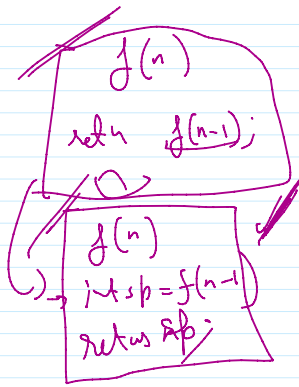 f(n)
retn f(n-1);
f(n)
int sp = f(n-1)
return sp;